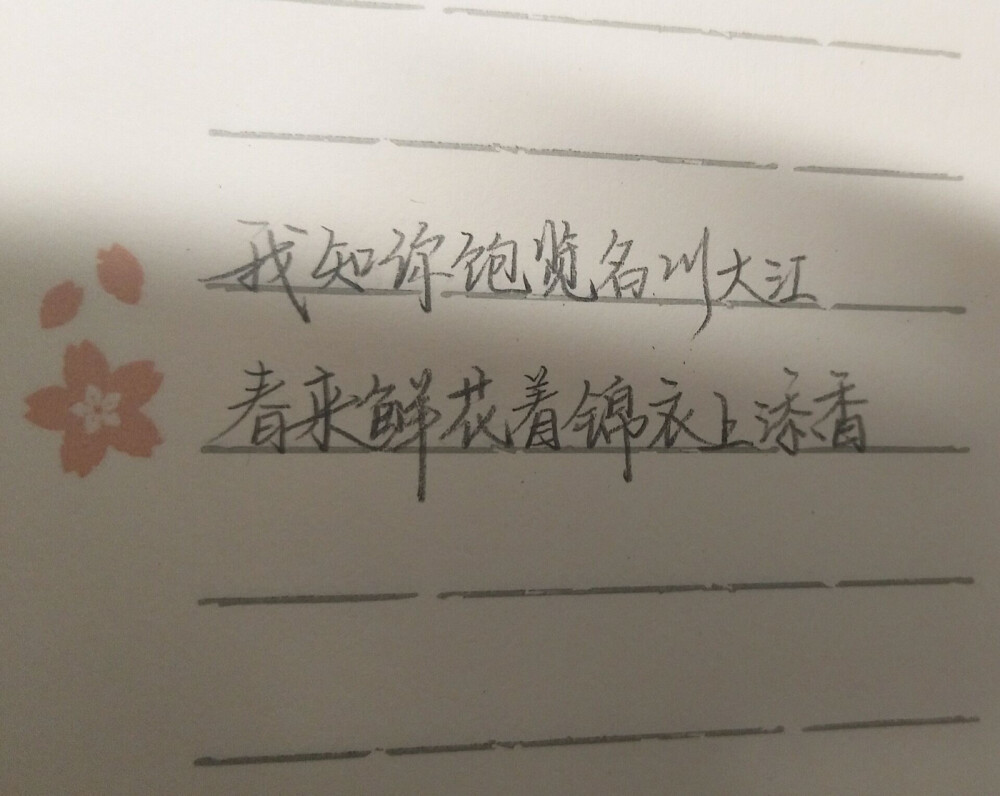 我知你饱览名川大江
春来鲜花着锦衣上添香